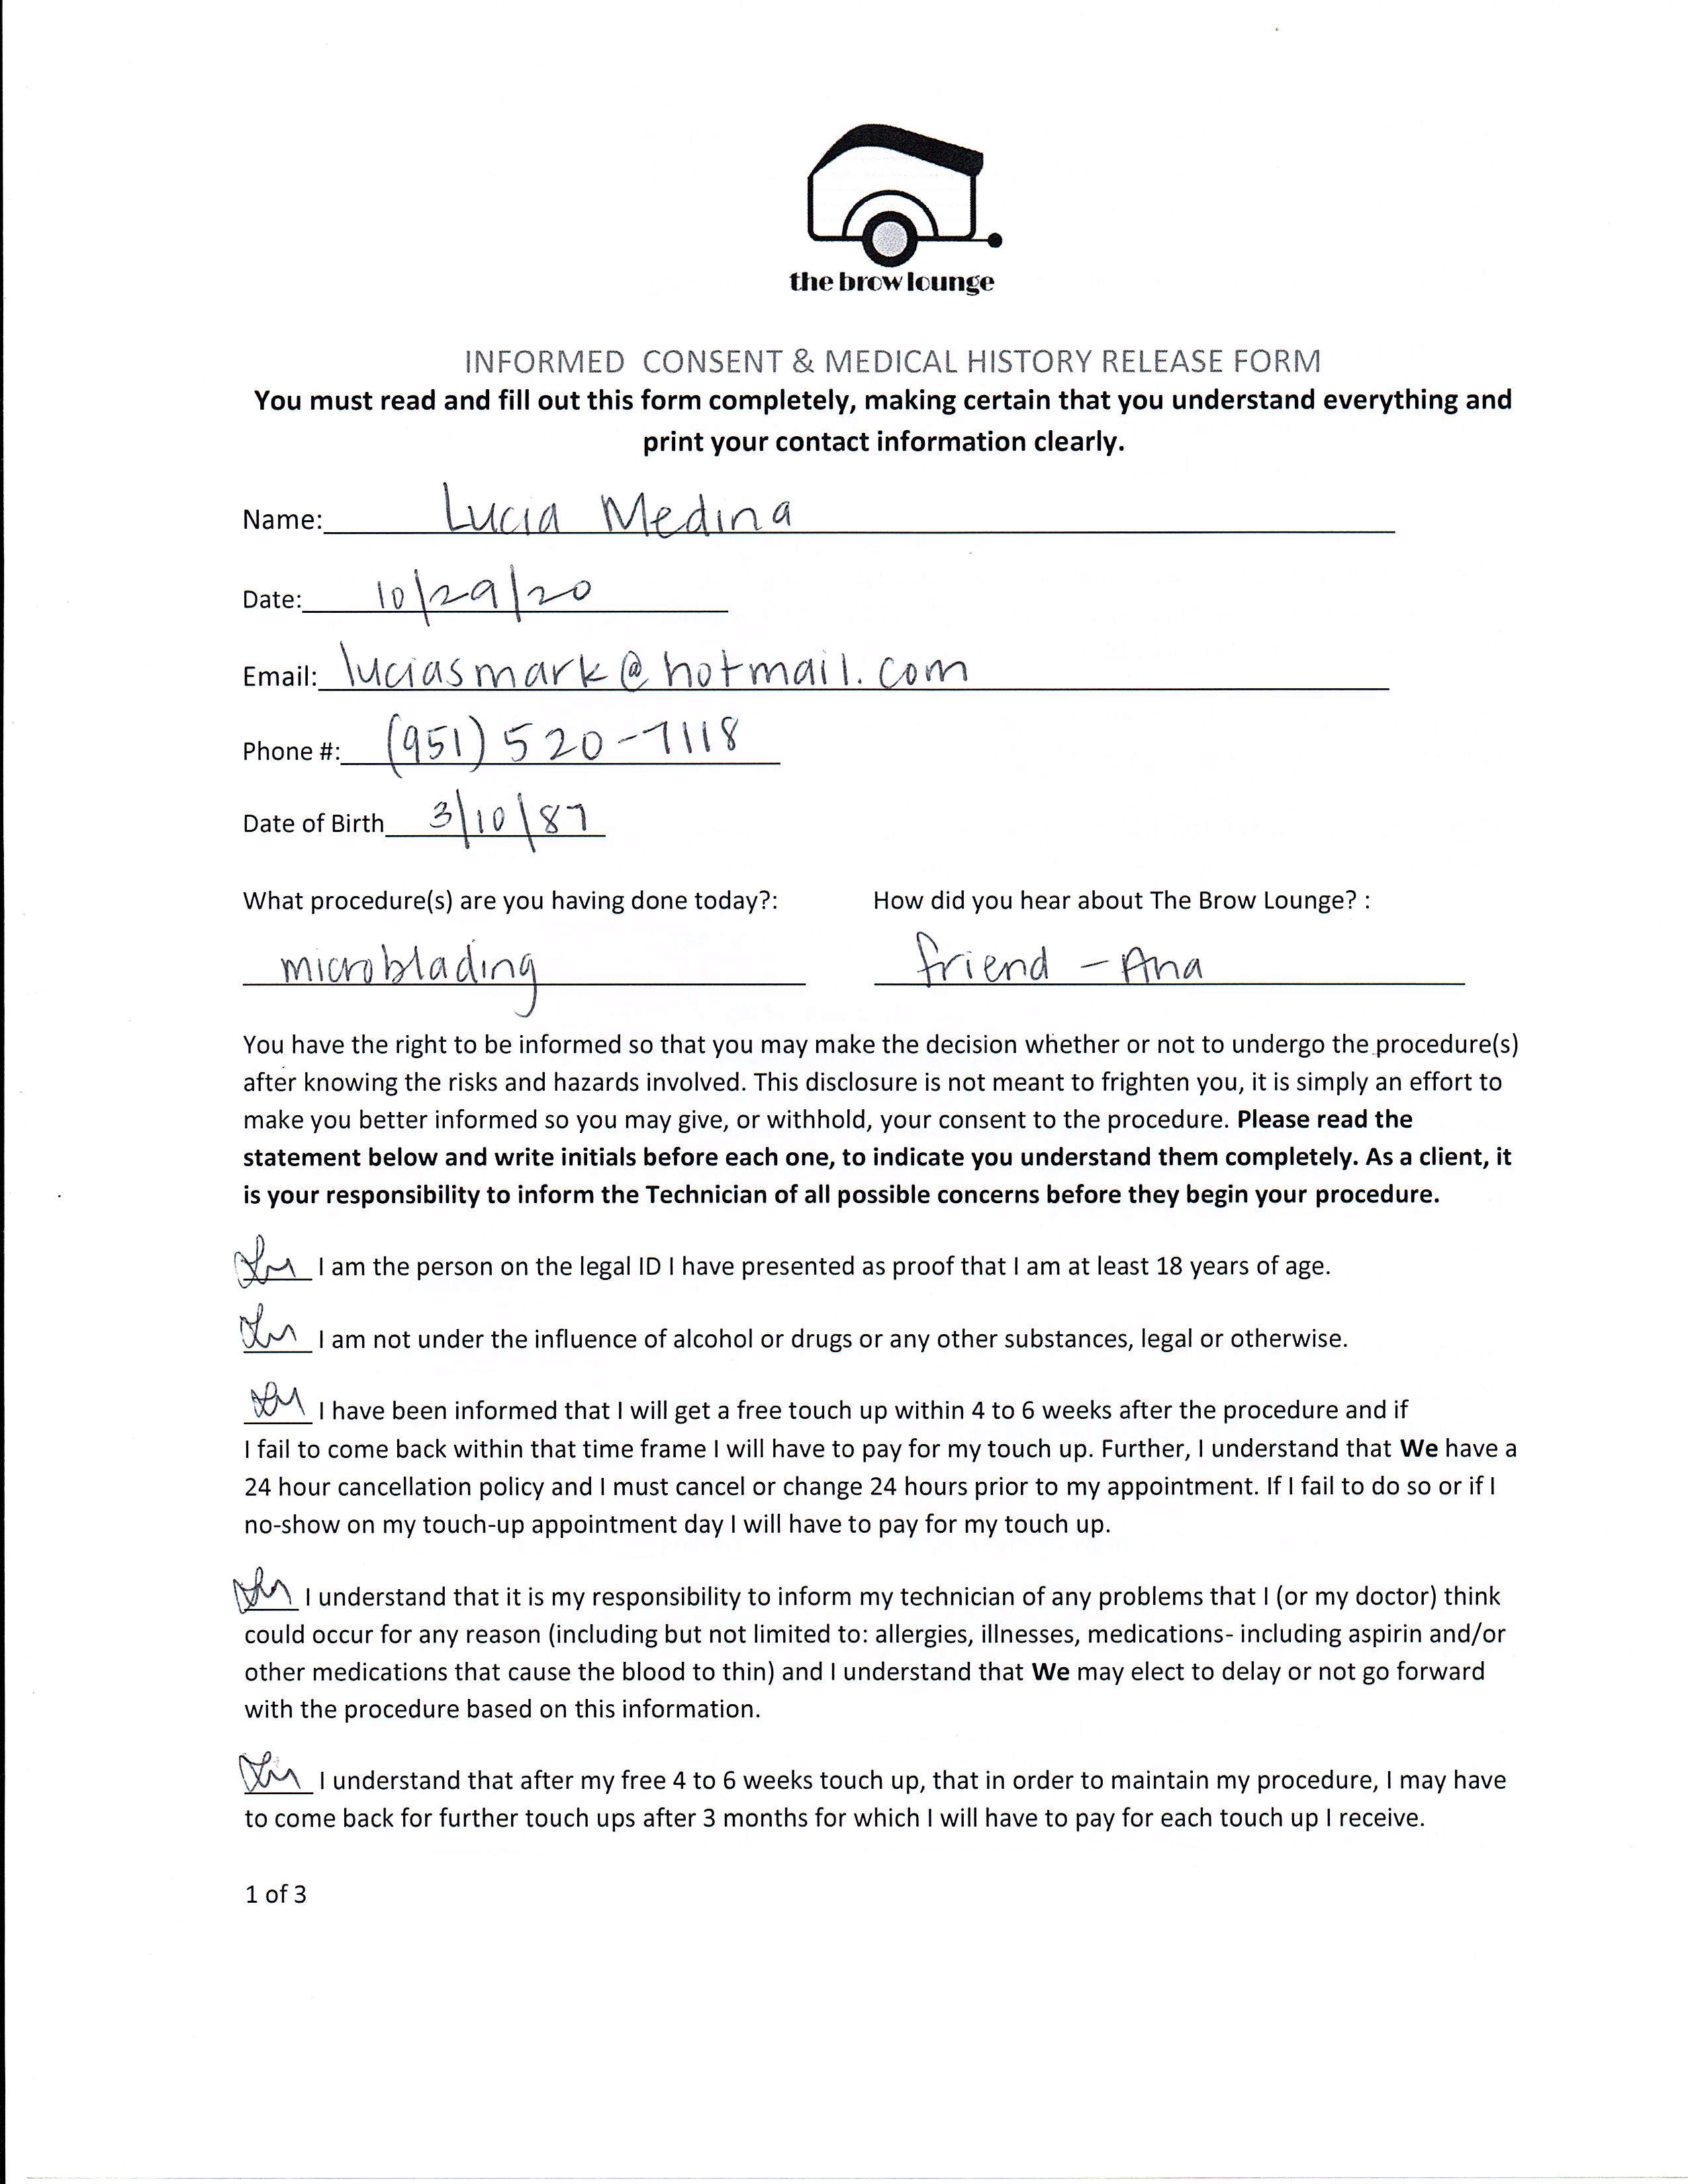 the brow lounge
INFORMED CONSENT & MEDICAL HISTORY RELEASE FORM
You must read and fill out this form completely, making certain that you understand everything and
print your contact information clearly.
Name: Lucia Medina
Date: 10/29/20
Email: luciasmark@hotmail.com
Phone #: (951) 520-7118
Date of Birth 3/10/87
What procedure(s) are you having done today?: How did you hear about The Brow Lounge? :
microblading friend - Ana
You have the right to be informed so that you may make the decision whether or not to undergo the procedure(s)
after knowing the risks and hazards involved. This disclosure is not meant to frighten you, it is simply an effort to
make you better informed so you may give, or withhold, your consent to the procedure. Please read the
statement below and write initials before each one, to indicate you understand them completely. As a client, it
is your responsibility to inform the Technician of all possible concerns before they begin your procedure.
LM I am the person on the legal ID I have presented as proof that I am at least 18 years of age.
LM I am not under the influence of alcohol or drugs or any other substances, legal or otherwise.
LM I have been informed that I will get a free touch up within 4 to 6 weeks after the procedure and if
I fail to come back within that time frame I will have to pay for my touch up. Further, I understand that We have a
24 hour cancellation policy and I must cancel or change 24 hours prior to my appointment. If I fail to do so or if I
no-show on my touch-up appointment day I will have to pay for my touch up.
LM I understand that it is my responsibility to inform my technician of any problems that I (or my doctor) think
could occur for any reason (including but not limited to: allergies, illnesses, medications- including aspirin and/or
other medications that cause the blood to thin) and I understand that We may elect to delay or not go forward
with the procedure based on this information.
LM I understand that after my free 4 to 6 weeks touch up, that in order to maintain my procedure, I may have
to come back for further touch ups after 3 months for which I will have to pay for each touch up I receive.
1 of 3